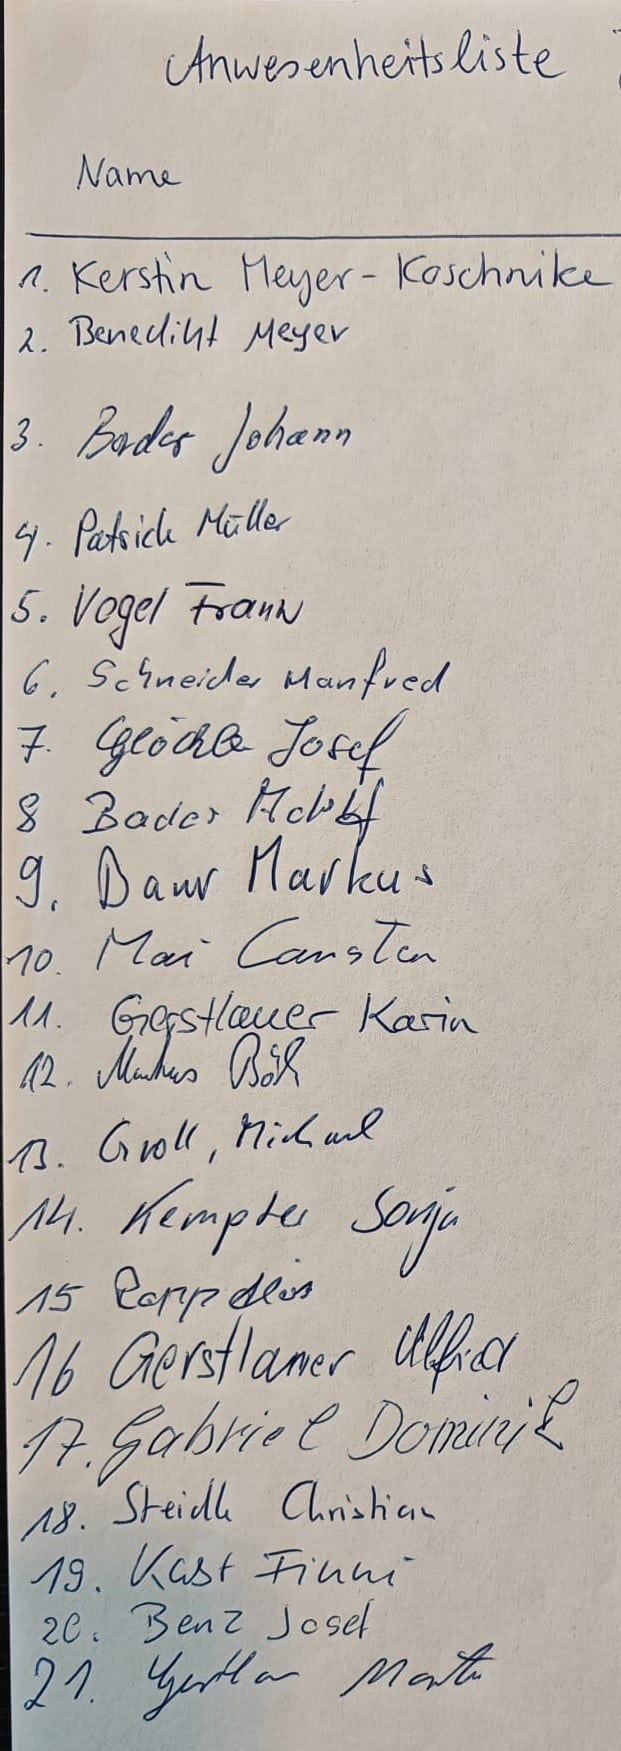 Anwesenheitsliste
Name
1. Kerstin Meyer-Koschnike
2. Benedikt Meyer
3. Bader Johann
4. Patrick Müller
5. Vogel Frann
6. Schneider Manfred
7. Josef
8 Bader
9. Baur Markus
10. Mai Carsten
11. Gerstlauer Karin
12. Markus Böh
13. Groll, Michael
14. Kempter Sonja
15
16 Gerstlauer Alfred
17. Gabriel Dominik
18. Steidle Christian
19. Kast Finni
20. Benz Josef
21.